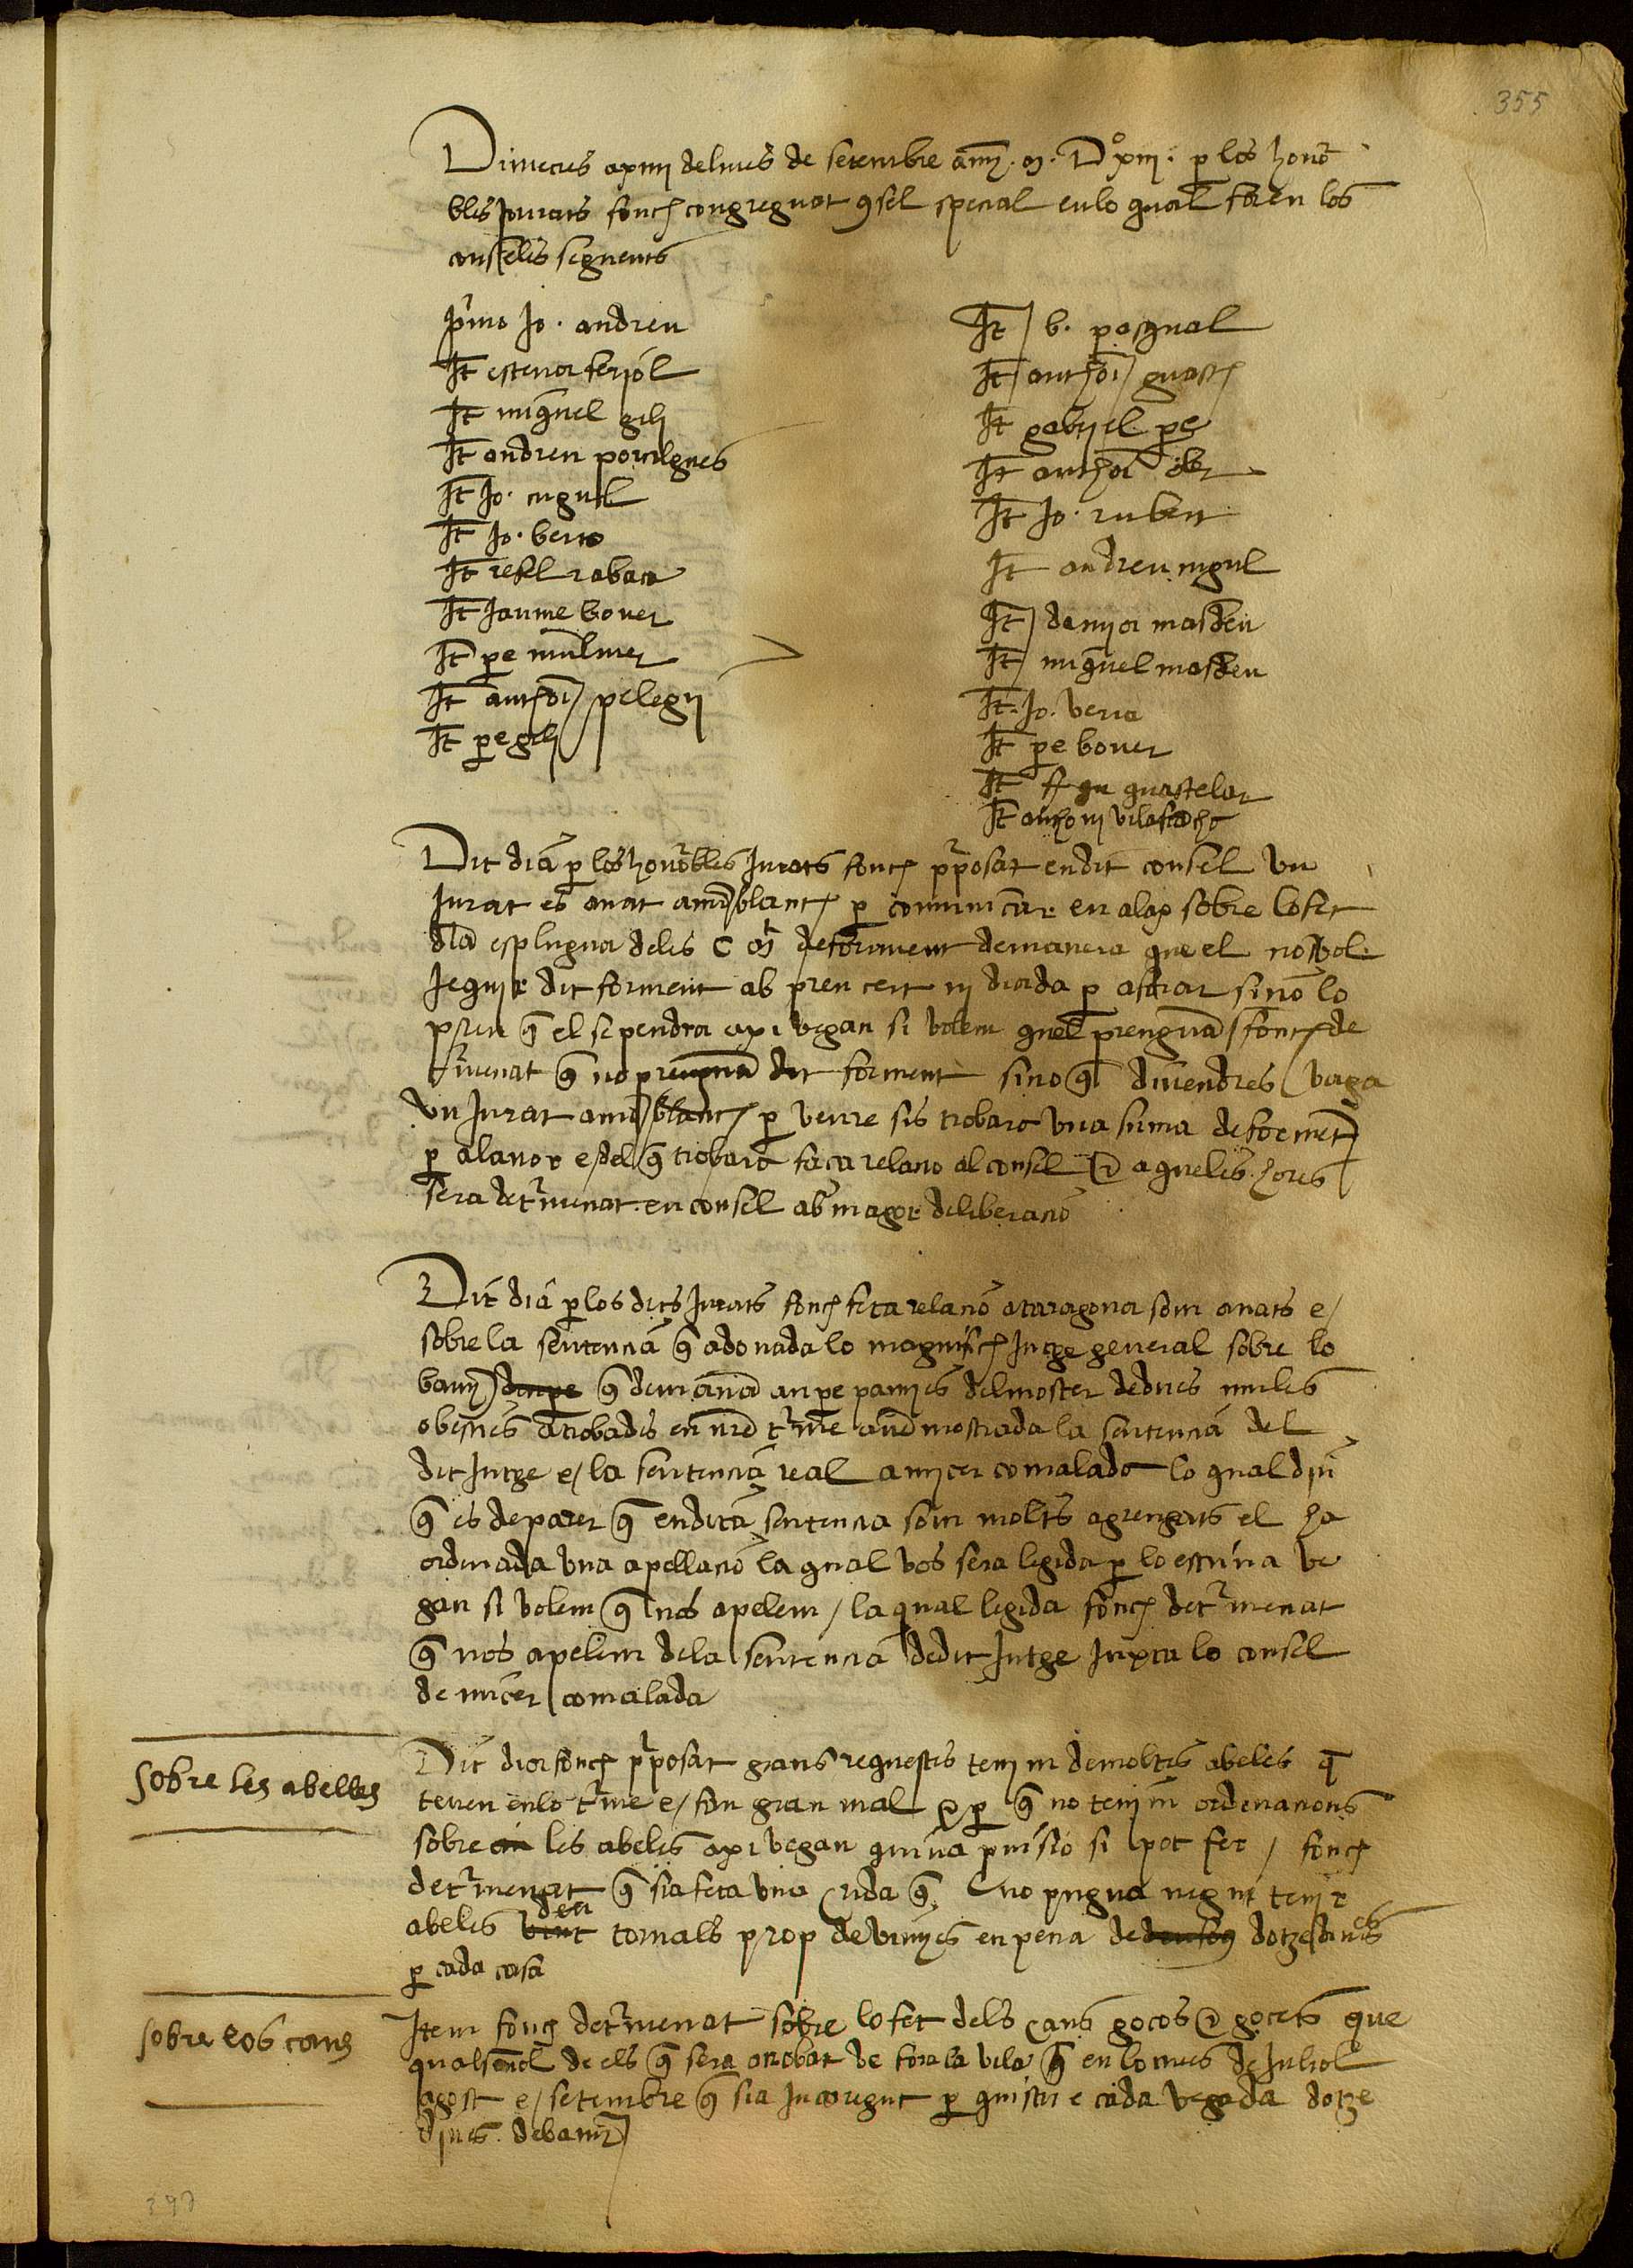 355
Dimecres a xiiii del mes de setembre any M D xiii per los honora
bles Jurats fonch congreguat consel special en lo qual foren los
conselés seguents
primo Jo. andreu
It esteva feriol
It miguel gili
It andreu porcilgues
It Jo. cugul
It Jo. berto
It refel rabaça
It Jaume bover
It pere mulner
It anthoni pelegri
It pere gili
It b. pasqual
It anthoni guasch
It gabriel pere
It anthoni
It Jo. rubert
It andreu cugul
It damia masdeu
It miguel masdeu
It Jo. veria
It pere bover
It guastelar
It anthoni vilafrancha
Dit dia per los honorables Jurats fonch proposat en dit consel un
Jurat es anat a muntblanch per comunicar en alax sobre lo fet
dela espluga dels C de forment de manera que el no vol
tequir dit forment ab preu cert ni diada per aforar sino lo
preu que el se pendra axi vegan si volem quel prengua fonch de
terminat que no prengua dit forment sino que divendres vaga
un Jurat a muntblanch per veure sis trobara una suma de forment
per a lavor e del que trobara faca relacio al consel e aquelles hores
sera determenat en consel ab magor deliberacio
Dit dia per los dits Jurats fonch feta relacio a taragona som anats e
sobre la sentencia que a donada lo magnifich Jutge general sobre lo
bany que demanava an pere panyes del moster de dues mules
o besties atrobades en nostre terme avem mostrada la sentencia del
dit Jutge e la sentencia real a micer comalada lo qual diu
que es de parer que en dita sentencia som molts agreugats el ha
ordenada una apellacio la qual vos sera legida per lo escriva ve
gan si volem que nos apelem / la qual legida fonch determenat
que nos apelem dela sentencia de dit Jutge Juxta lo consel
de micer comalada
sobre les abelles
Dit dia fonch proposat grans requestes tenim de moltes abeles que
tenen en lo terme e fan gran mal e per que no tenim ordenacions
sobre les abeles axi vegan quina provisio si pot fer / fonch
determenat que sia feta una crida que no pugua negu tenir
abeles deu tornals prop de vinyes en pena de dotze dines
per cada casa
sobre los cans
Item fonch determenat sobre lo fet dels cans gocos e gocets que
qualsevol de els que sera atrobat de fora la vila que en lo mes de Juliol
agost e setembre que sia Incoregut per quiscu e cada vegada dotze
dines de bany